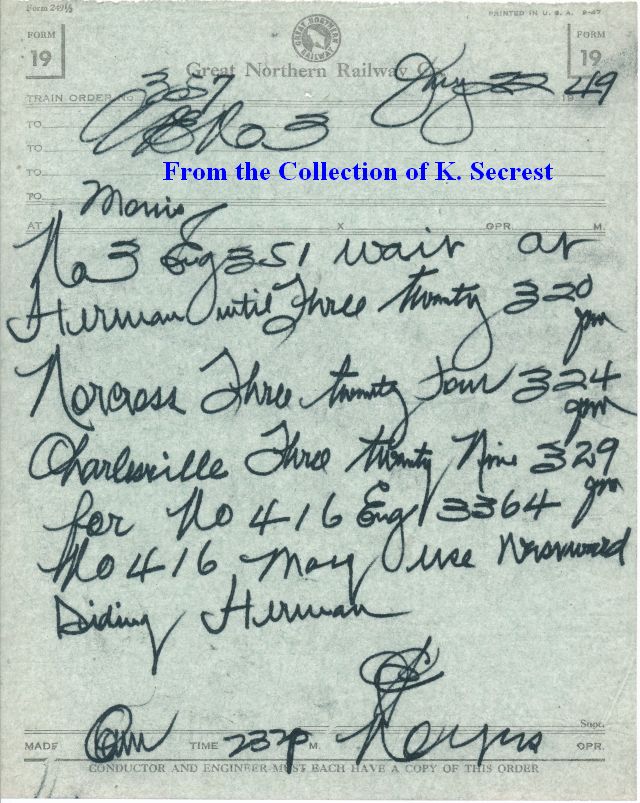 Form 249½
PRINTED IN U. S. A. 8-47
FORM 19
GREAT NORTHERN RAILWAY
FORM 19
Great Northern Railway Co.
TRAIN ORDER No. 357 July 22 1949
TO C&E No 3
TO
TO
From the Collection of K. Secrest
TO
AT Morris X OPR. M
No 3 Eng 351 wait at
Herman until Three twenty 320
pm
Norcross Three twenty four 324
pm
Charlesville Three twenty Nine 329
pm
for No 416 Eng 3364
No 416 may use Westward
Siding Herman
Supt.
MADE Com TIME 232p M. OPR.
CONDUCTOR AND ENGINEER MUST EACH HAVE A COPY OF THIS ORDER